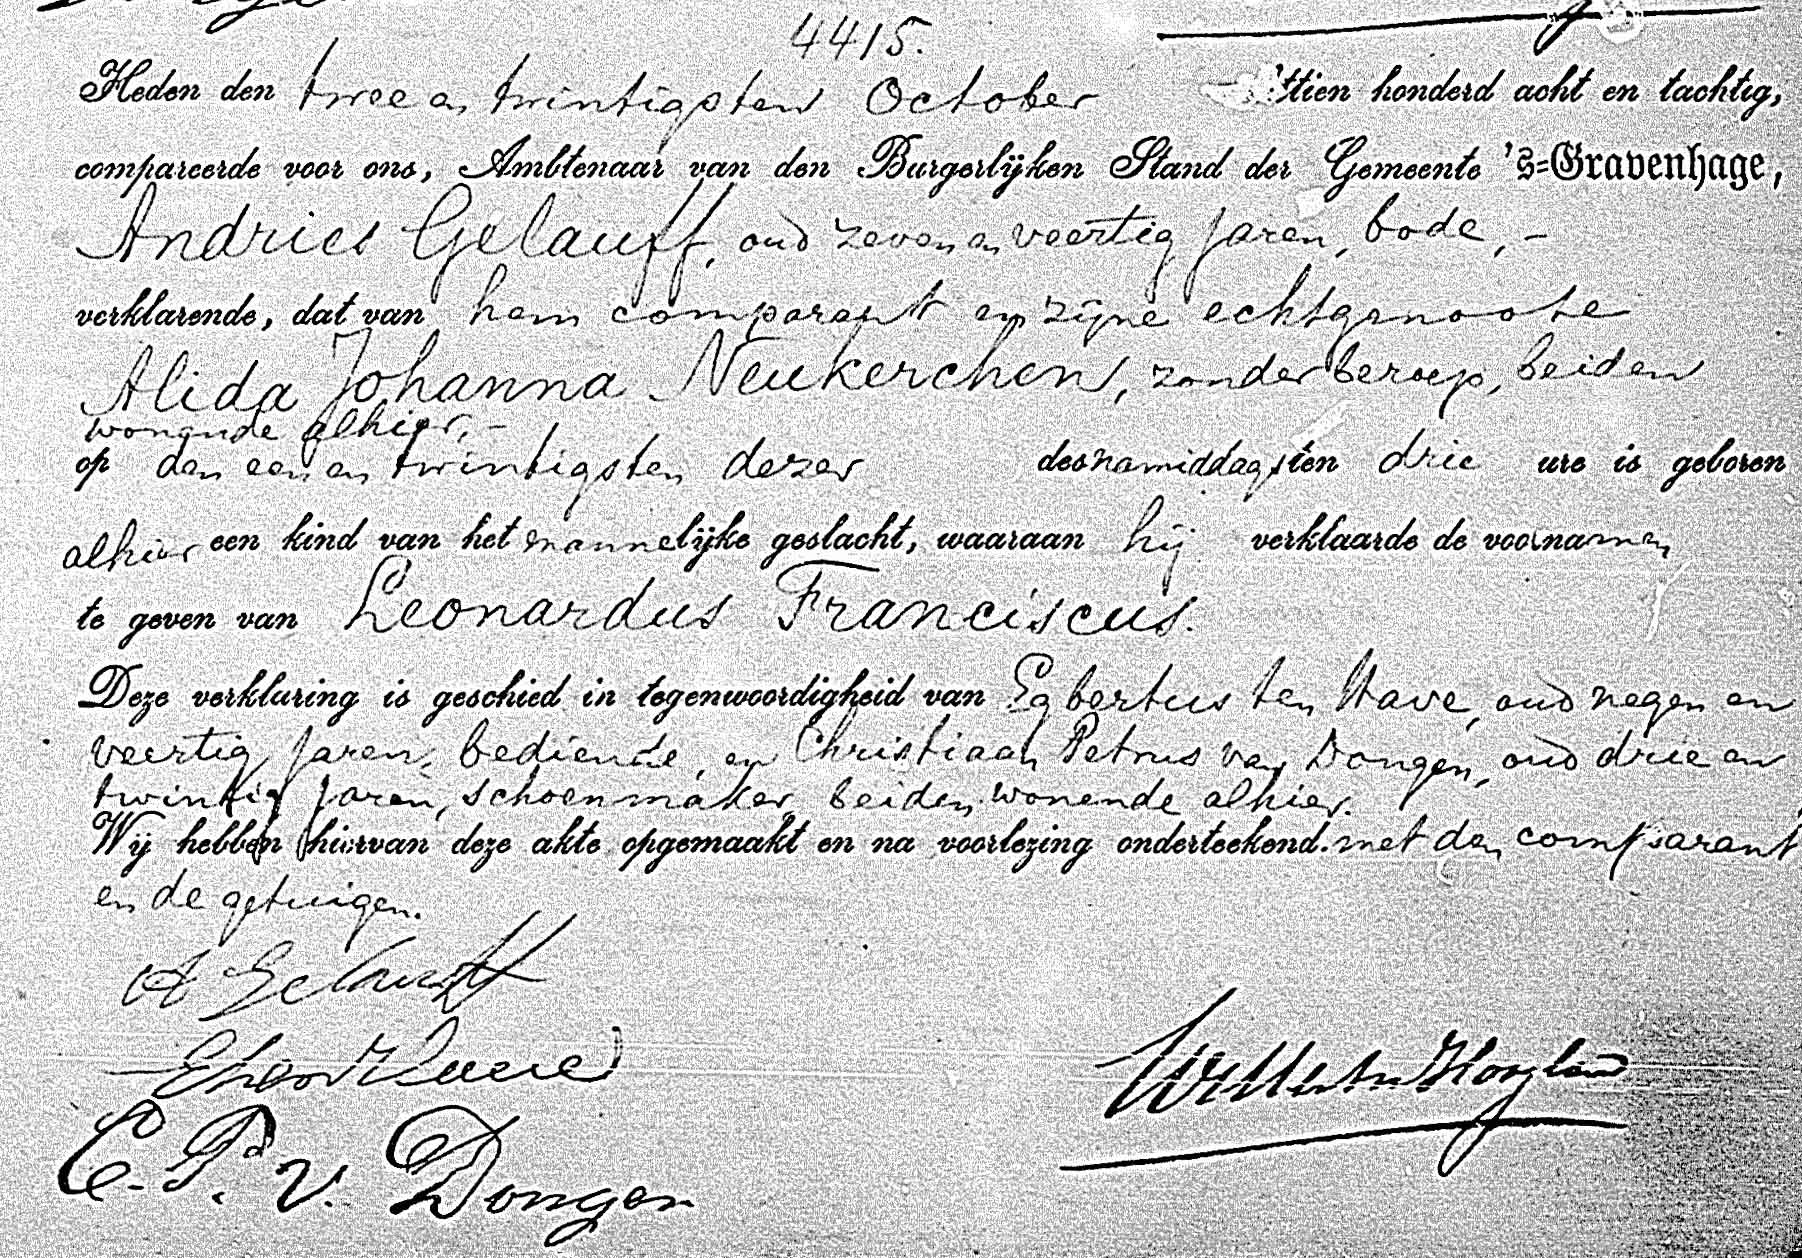 4415.
Heden den twee en twintigsten October ttien honderd acht en tachtig,
compareerde voor ons, Ambtenaar van den Burgerlijken Stand der Gemeente 's=Gravenhage,
Andries Gelauff, oud zeven en veertig jaren, bode, –
verklarende, dat van hem comparant en zijne echtgenoote
Alida Johanna Neukerchen, zonder beroep, beiden
wonende alhier, –
op den een en twintigsten dezer des namiddags ten drie ure is geboren
alhier een kind van het mannelijke geslacht, waaraan hij verklaarde de voornamen
te geven van Leonardus Franciscus.
Deze verklaring is geschied in tegenwoordigheid van Egbertus ten Have, oud negen en
veertig jaren, bediende, en Christiaan Petrus van Dongen, oud drie en
twintig jaren, schoenmaker, beiden wonende alhier.
Wij hebben hiervan deze akte opgemaakt en na voorlezing onderteekend. met den comparant
en de getuigen.
A Gelauff
C. P. v. Dongen